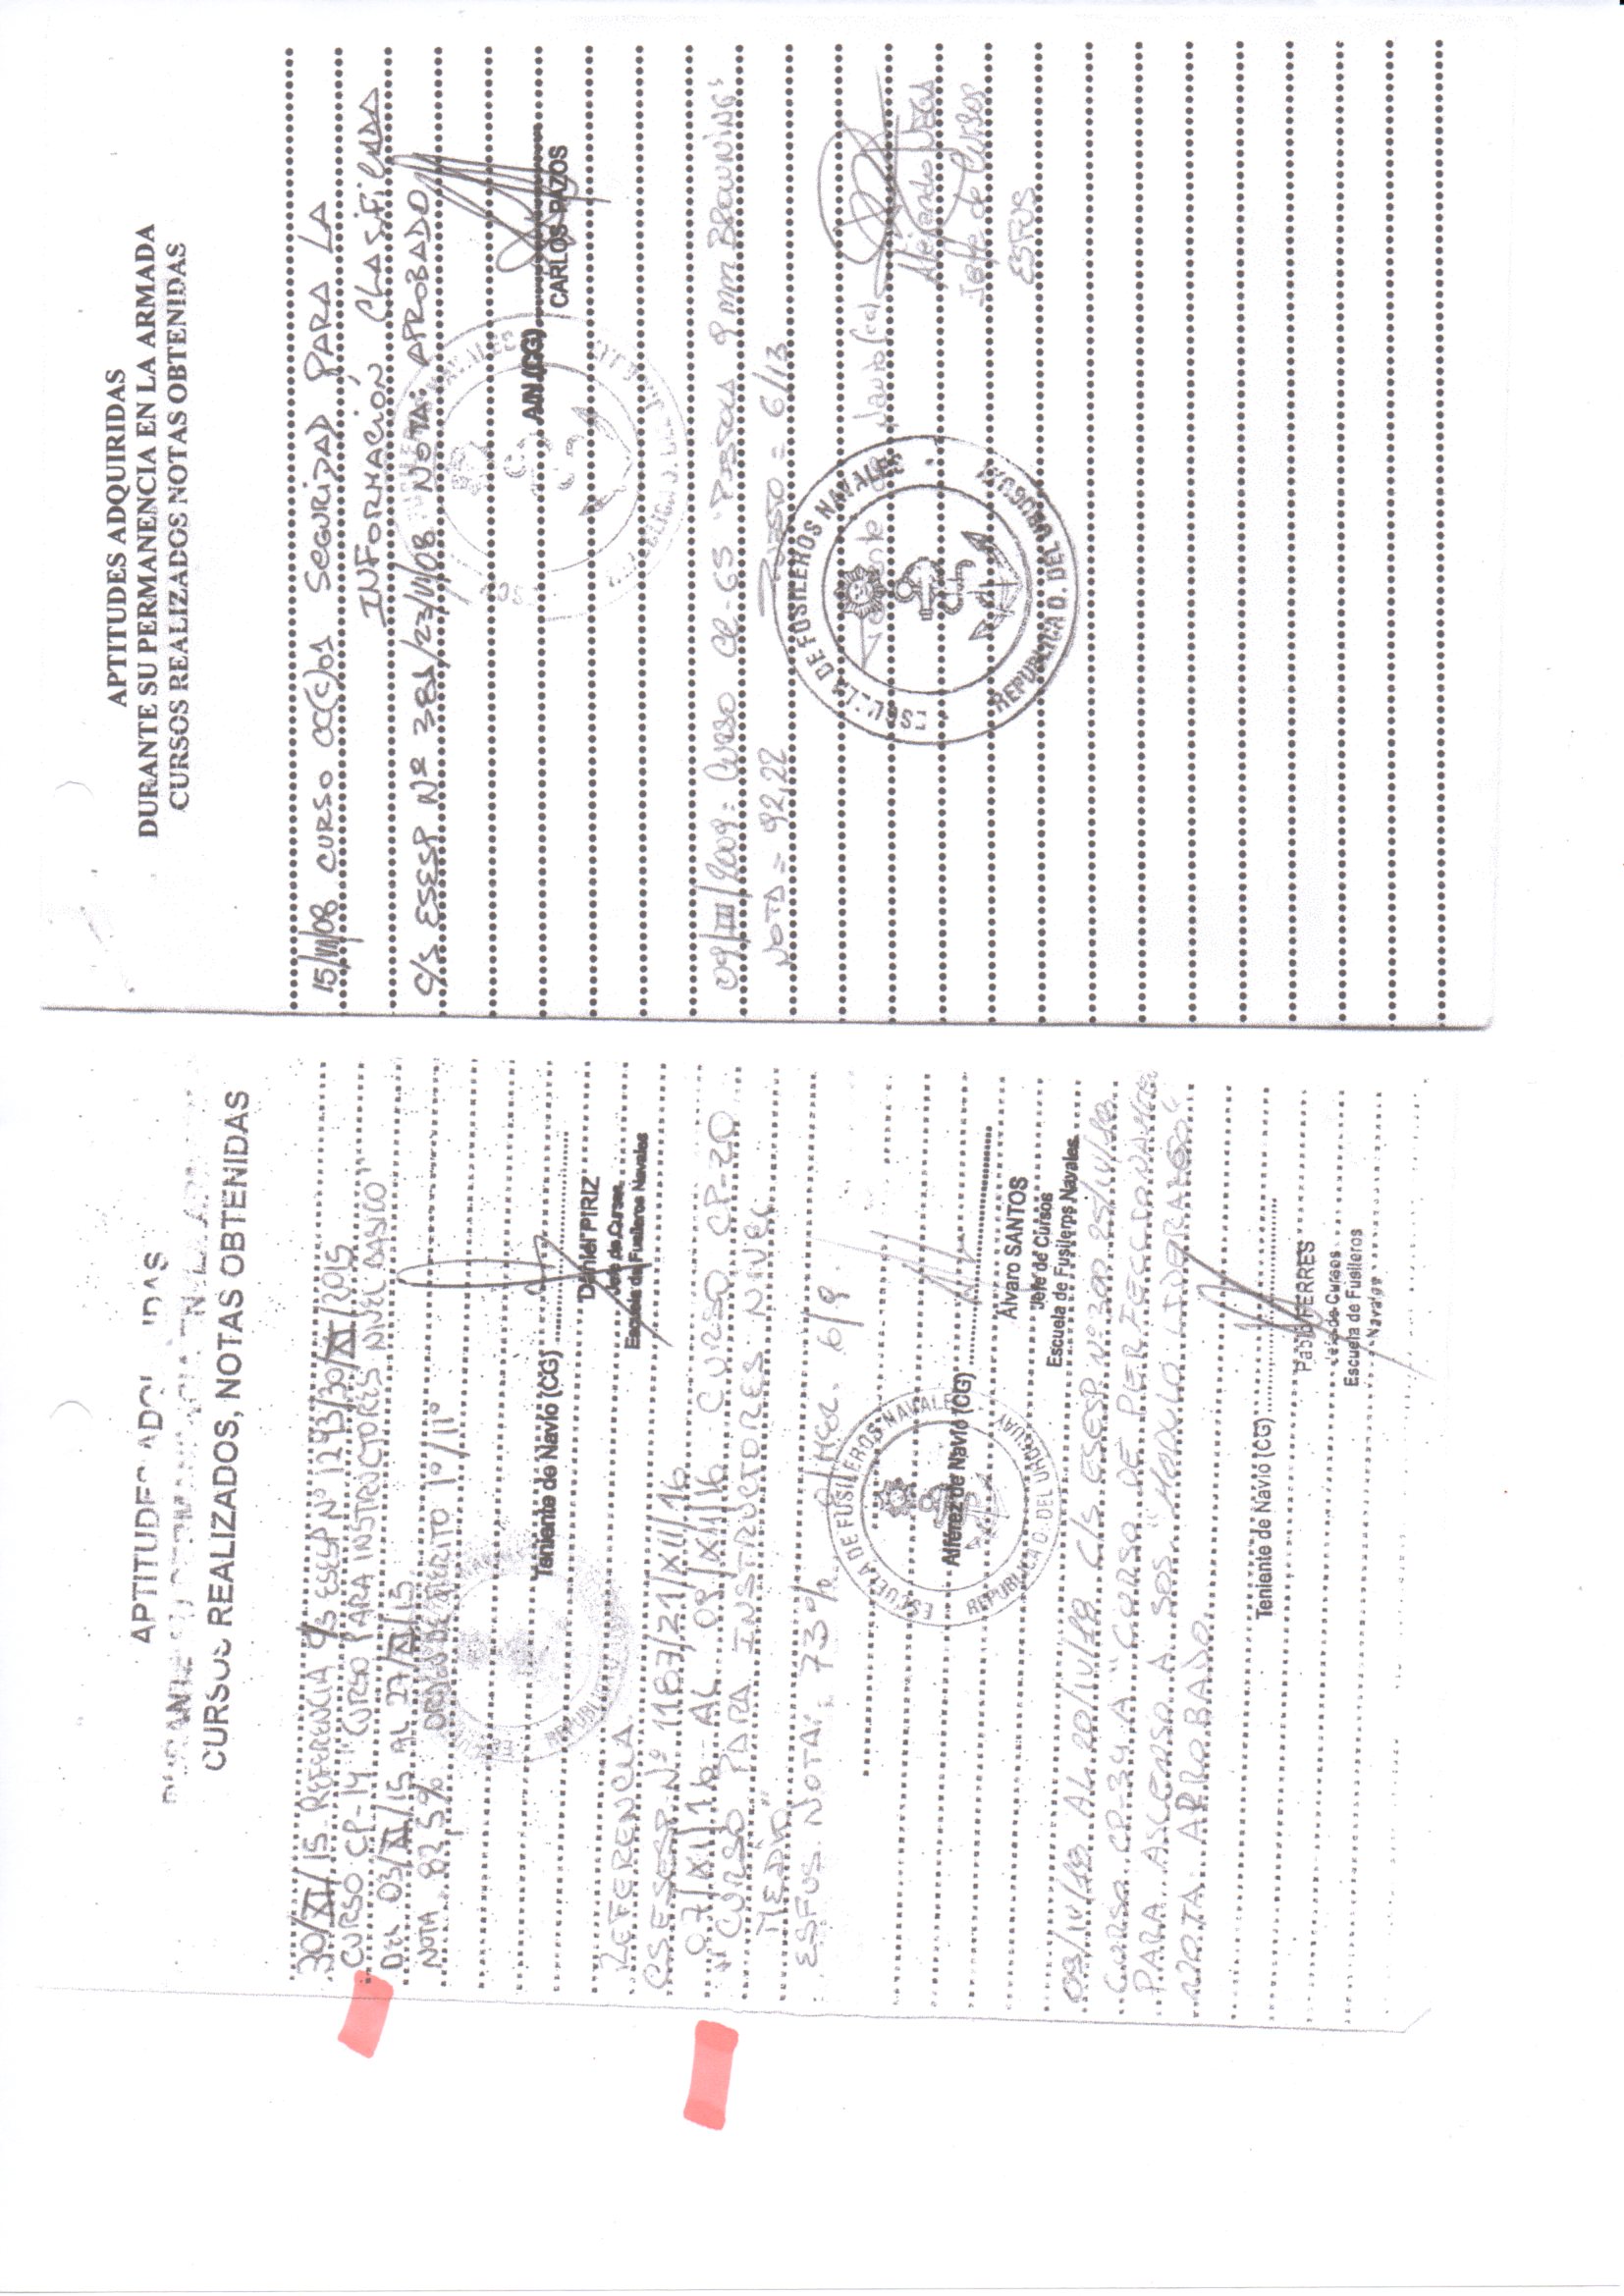 APTITUDES ADQUIRIDAS
DURANTE SU PERMANENCIA EN LA ARMADA
CURSOS REALIZADOS, NOTAS OBTENIDAS
30/XI/15 REFERENCIA C/S ESESP Nº 1293/30/XI/2015
CURSO CP-14 "CURSO PARA INSTRUCTORES NIVEL BASICO"
DEL 03/XI/15 AL 27/XI/15
NOTA 82,5% ORDEN DE MERITO 1º/11º
Teniente de Navío (CG)
Daniel PIRIZ
Jefe de Cursos
Escuela de Fusileros Navales
REFERENCIA
CS ESESP Nº 1187/21/XII/16
07/XI/16 AL 09/XII/16 CURSO CP-20
"CURSO PARA INSTRUCTORES NIVEL
MEDIO"
ESFUS. NOTA: 73% O/MER. 6/9.
ESCUELA DE FUSILEROS NAVALES
REPUBLICA O. DEL URUGUAY
Alférez de Navío (CG)
Alvaro SANTOS
Jefe de Cursos
Escuela de Fusileros Navales
09/IV/18 AL 20/IV/18 C/S ESESP. Nº 300 25/IV/18
CURSO CP-34 A "CURSO DE
PARA ASCENSO A SOS "MODULO LIDERAZGO"
NOTA: APROBADO.
Teniente de Navío (CG)
Pablo FERRES
Jefe de Cursos
Escuela de Fusileros
Navales
APTITUDES ADQUIRIDAS
DURANTE SU PERMANENCIA EN LA ARMADA
CURSOS REALIZADOS NOTAS OBTENIDAS
15/VI/08 CURSO CC(C)01 SEGURIDAD PARA LA
INFORMACIÓN CLASIFICADA
C/S ESESP Nº 381/23/VI/08 NOTA: APROBADO
A/N (CG)
CARLOS PAZOS
09/III/2009: CURSO CC-65 "PISTOLA 9 mm BROWNING"
NOTA = 92,22 PUESTO = 6/13
ESCUELA DE FUSILEROS NAVALES
REPUBLICA O. DEL URUGUAY
Teniente de Navío (CG)
Jefe de Cursos
ESFUS